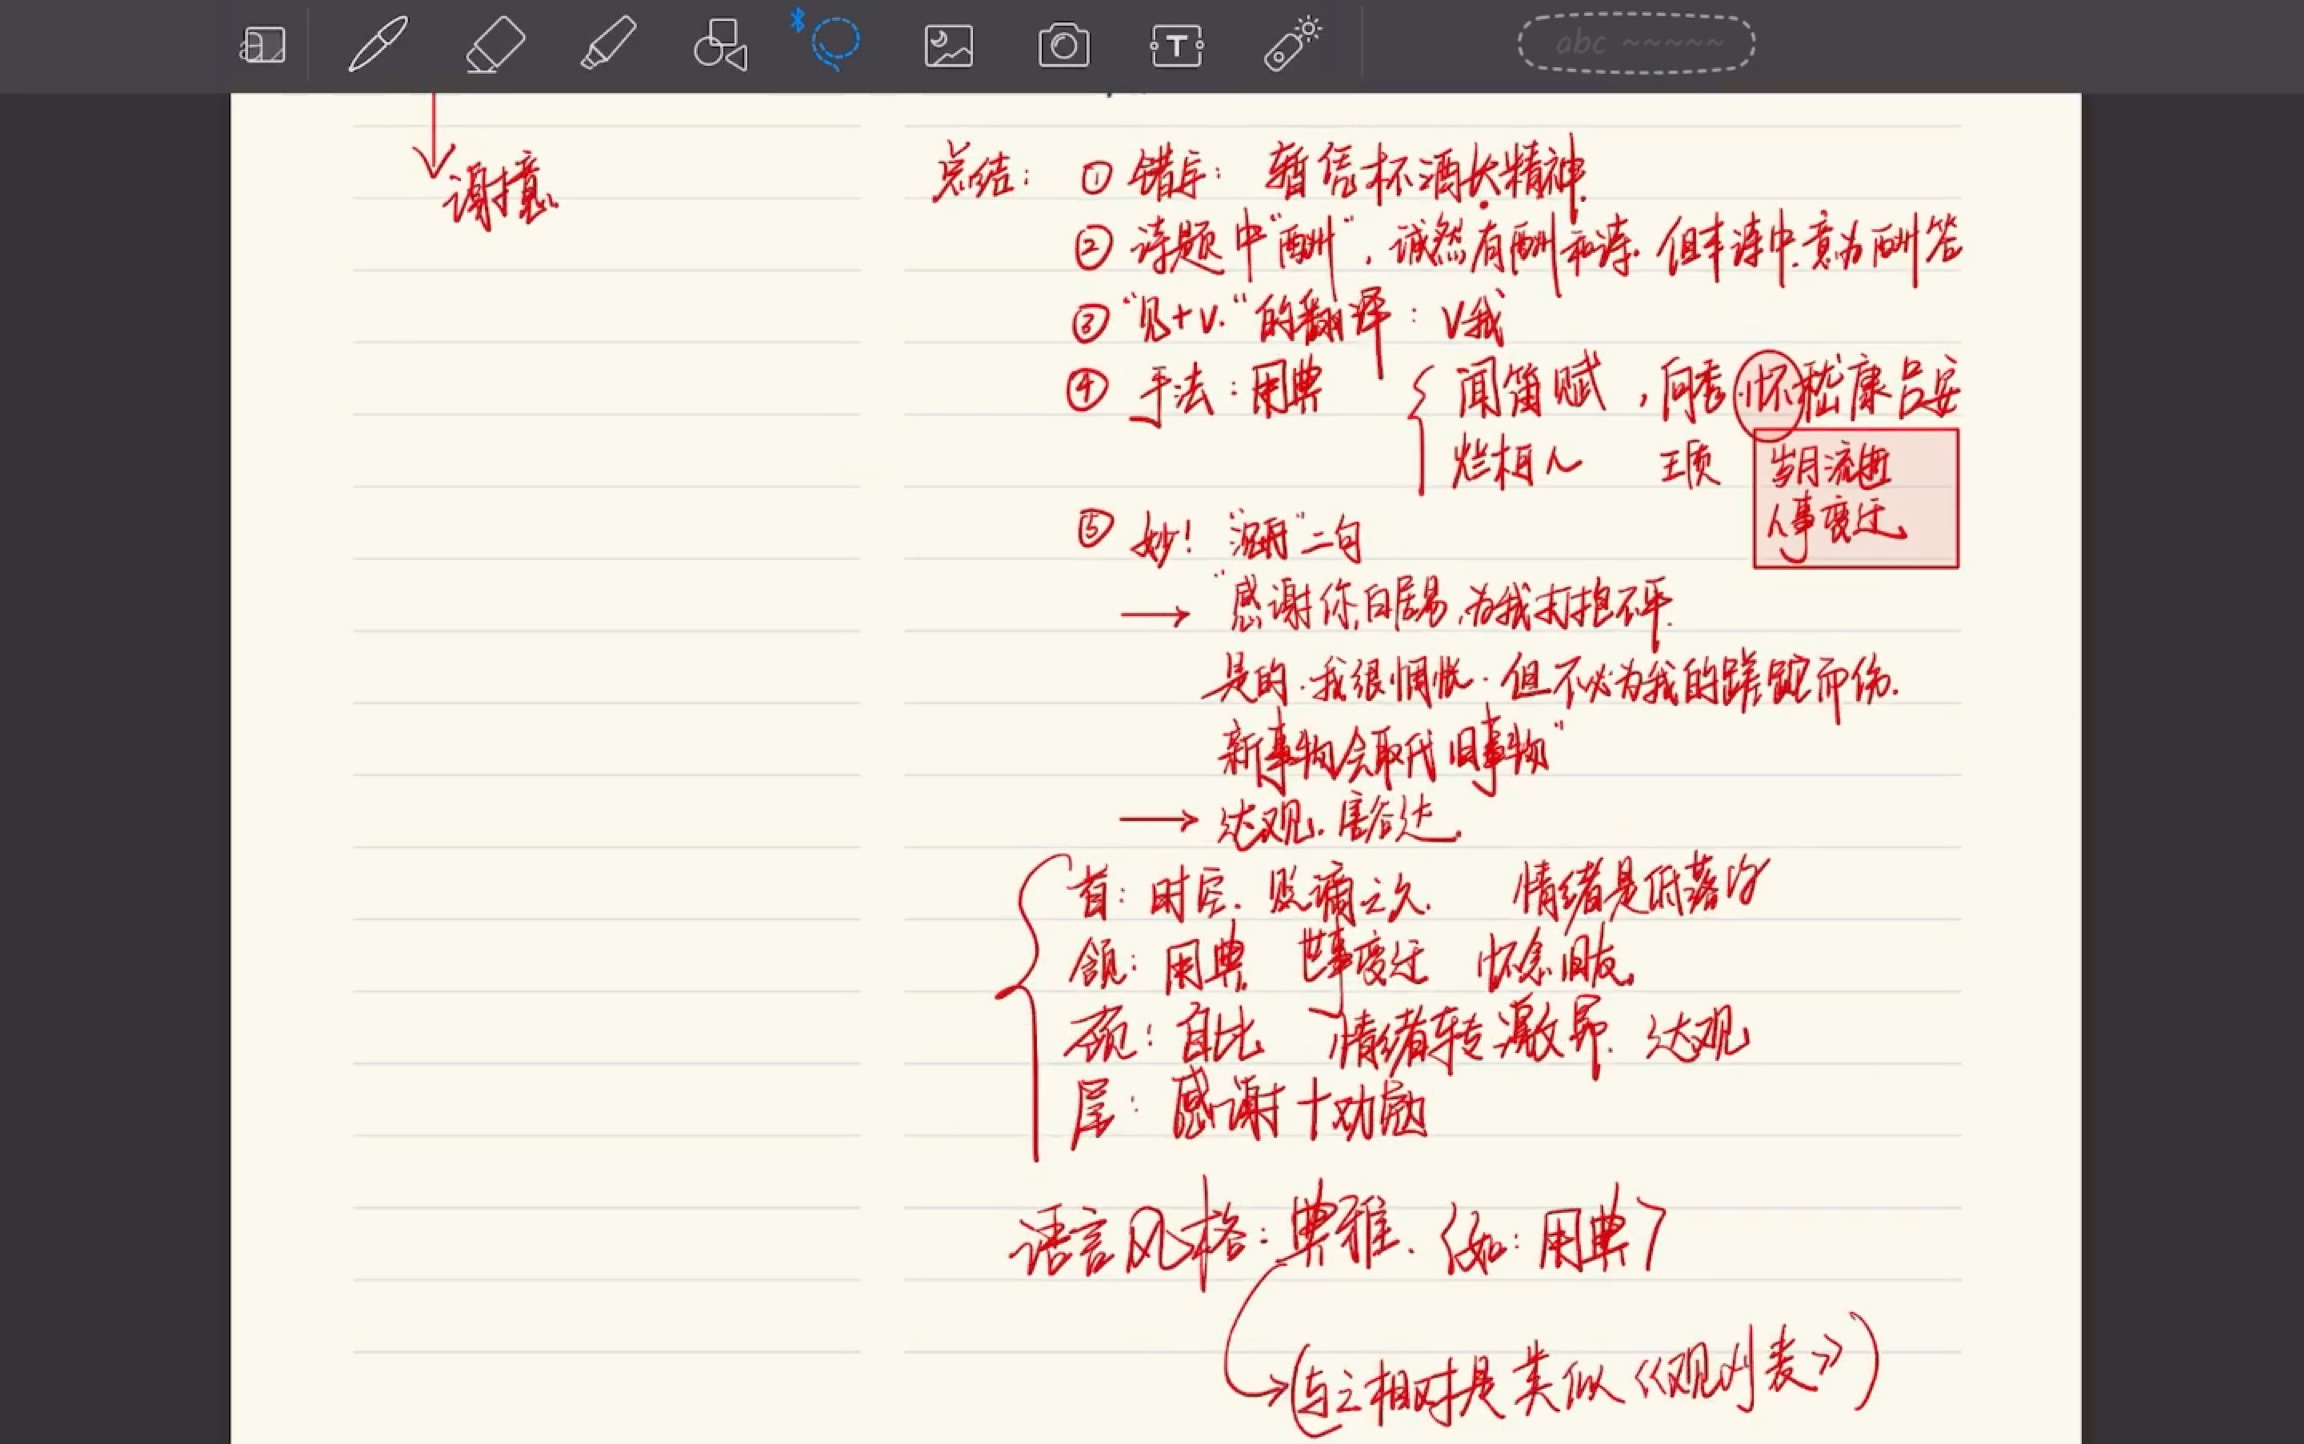 abc ~~~~~
T
谢意
总结: ① 错字: 暂凭杯酒长精神.
② 诗题中“酬”, 诚然有酬和诗. 但本诗中.意为酬答
③ “见+v.”的翻译: v我
④ 手法: 用典 { 闻笛赋, 向秀怀嵇康吕安
烂柯人 王质
岁月流逝
人事变迁
⑤ 妙! “沉舟”二句
→ “感谢你,白居易,为我打抱不平.
是的.我很惆怅.但不必为我的蹉跎而伤.
新事物会取代旧事物”
→ 达观. 豁达.
首: 时空. 贬谪之久. 情绪是低落的
颔: 用典. 世事变迁 怀念旧友.
颈: 自比 情绪转激昂. 达观
尾: 感谢+劝勉
语言风格: 典雅. (如: 用典)
(与之相对是类似《观刈麦》)